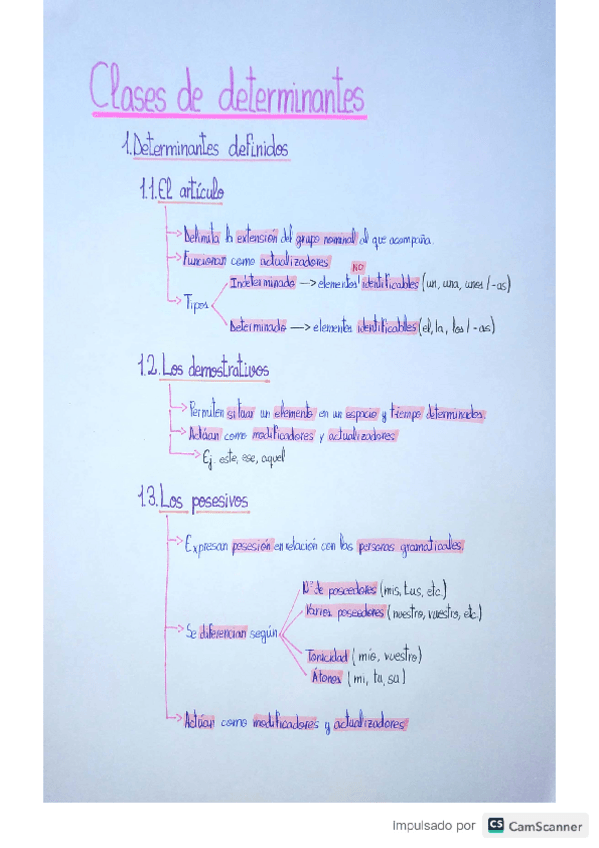 Clases de determinantes
1. Determinantes definidos
1.1. El artículo
-> Delimita la extensión del grupo nominal al que acompaña.
-> Funcionan como actualizadores
-> Tipos
Indeterminado -> elementos NO identificables (un, una, unos/-as)
Determinado -> elementos identificables (el, la, los/-as)
1.2. Los demostrativos
-> Permiten situar un elemento en un espacio y tiempo determinados.
-> Actúan como modificadores y actualizadores
-> Ej. este, ese, aquel
1.3. Los posesivos
-> Expresan posesión en relación con las personas gramaticales.
-> Se diferencian según
Nº de poseedores (mis, tus, etc.)
Varios poseedores (nuestro, vuestro, etc.)
Tonicidad (mío, vuestro)
Átonos (mi, tu, su)
-> Actúan como modificadores y actualizadores.
Impulsado por CS CamScanner